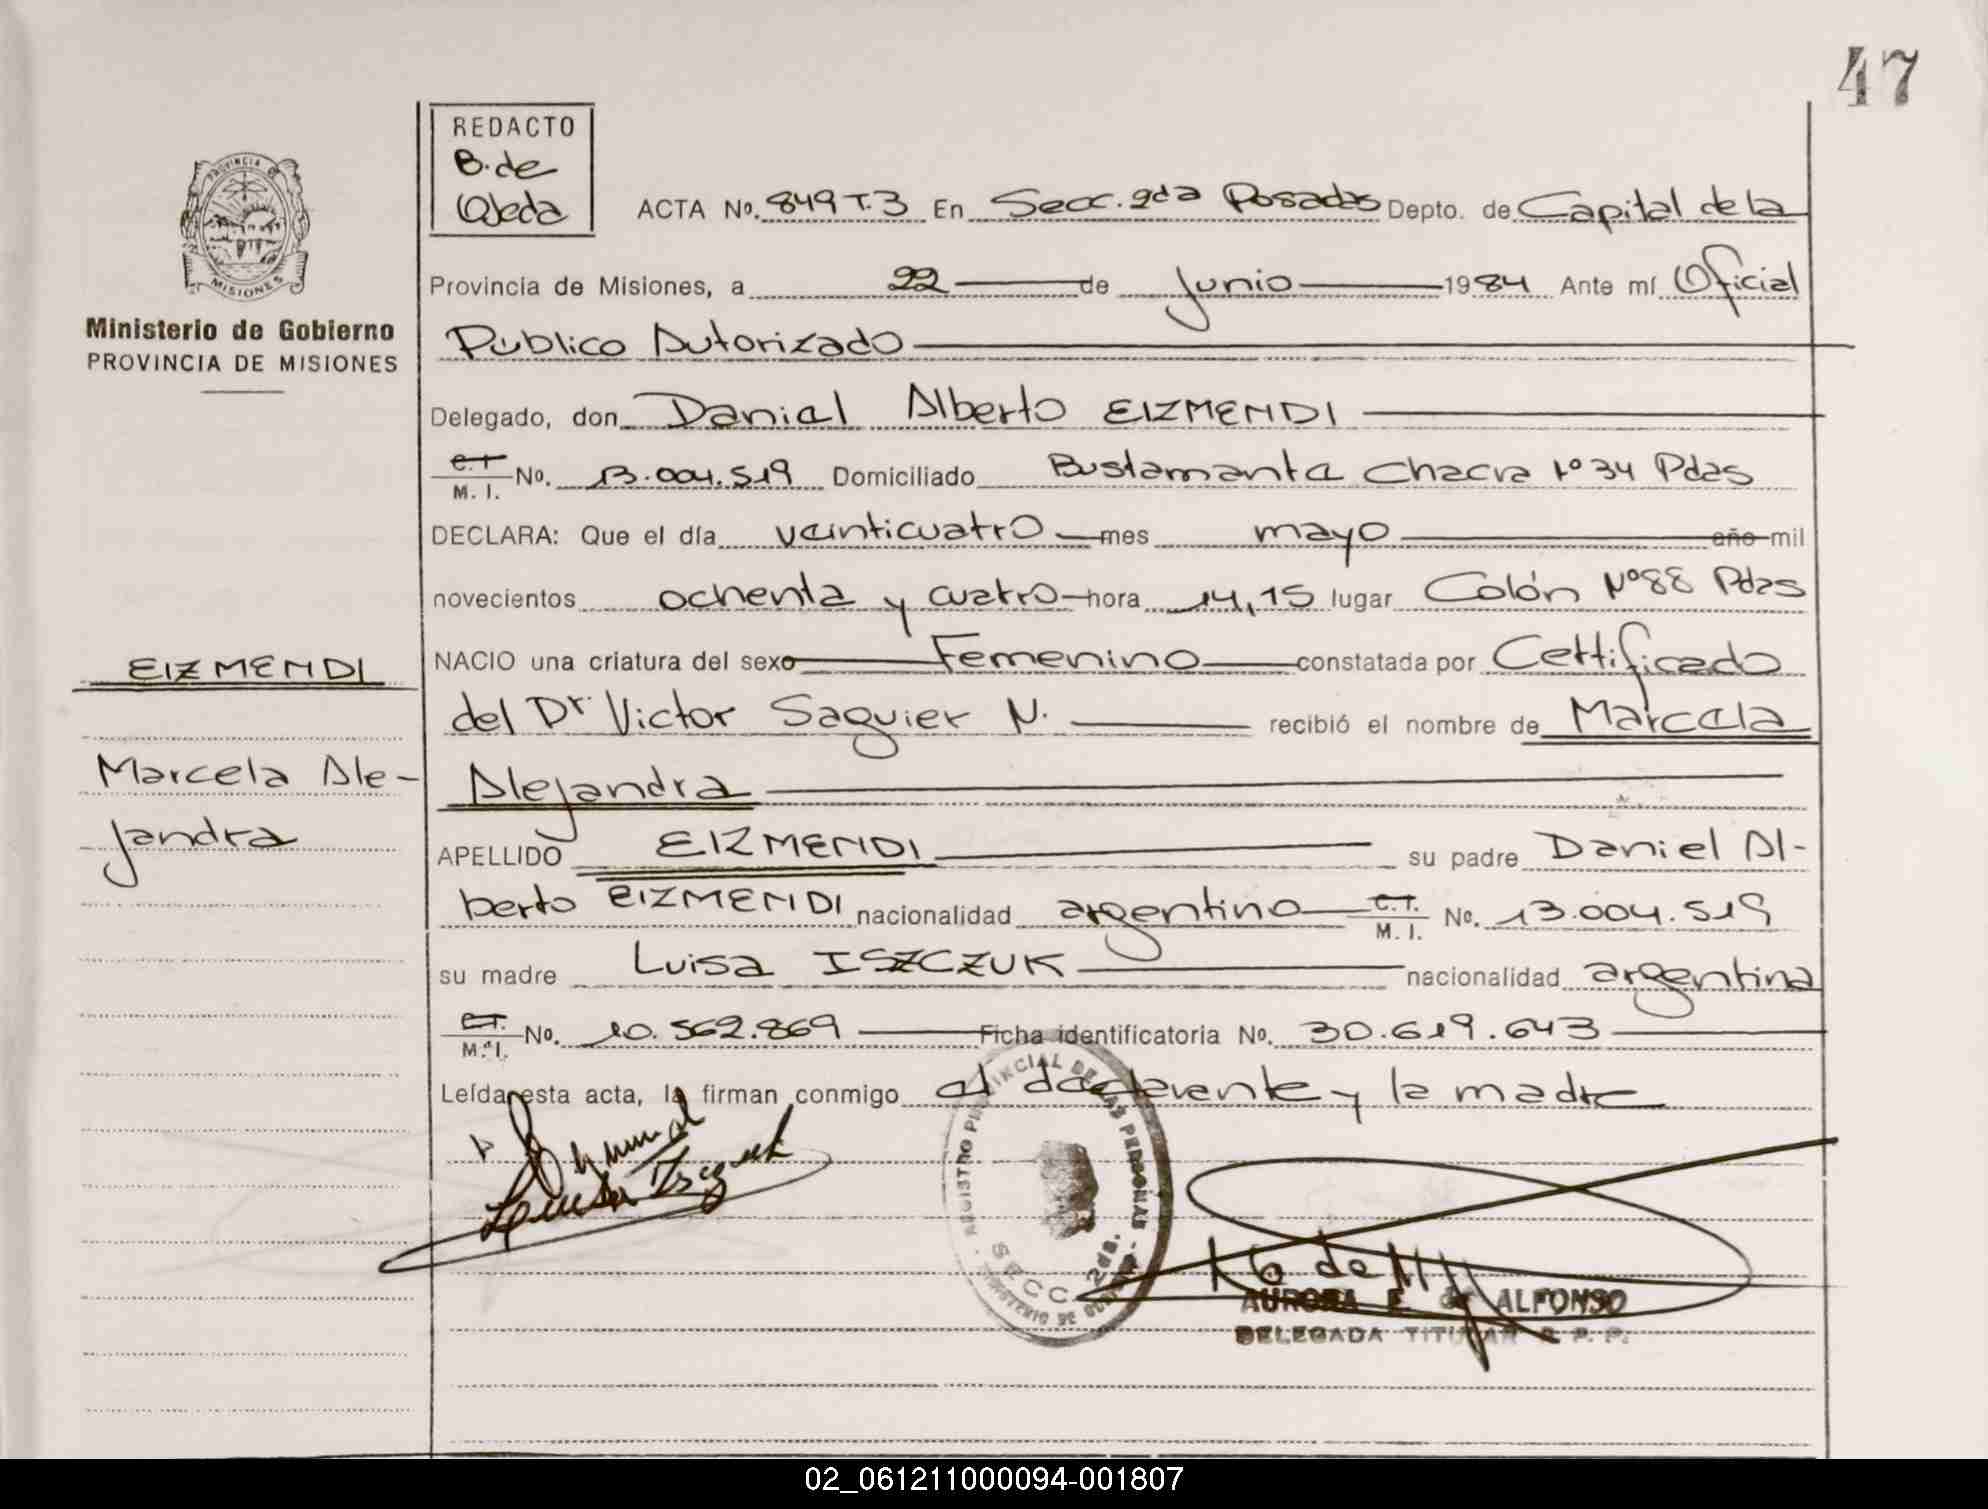 47
REDACTO
B. de
Ojeda
ACTA No. 849 T.3 En Secc. 2da Posadas Depto. de Capital de la
PROVINCIA DE
MISIONES
Ministerio de Gobierno
PROVINCIA DE MISIONES
Provincia de Misiones, a 22 de Junio 1984 Ante mí Oficial
Público Autorizado
Delegado, don Daniel Alberto EIZMENDI
C.I. M. I. No. 13.004.519 Domiciliado Bustamante Chacra Nº 34 Pdas
DECLARA: Que el día veinticuatro mes mayo año mil
novecientos ochenta y cuatro hora 14,15 lugar Colón Nº 88 Pdas
NACIO una criatura del sexo Femenino constatada por Certificado
del Dr Victor Saguier N. recibió el nombre de Marcela
Alejandra
EIZMENDI
Marcela Ale-
jandra
APELLIDO EIZMENDI su padre Daniel Al-
berto EIZMENDI nacionalidad argentino C.I. M. I. No. 13.004.519
su madre Luisa ISZCZUK nacionalidad argentina
C.I. M. I. No. 10.562.869 Ficha identificatoria No. 30.619.643
Leída esta acta, la firman conmigo el declarante y la madre
REGISTRO PROVINCIAL DE LAS PERSONAS
SECC. 2da.
MINISTERIO DE GOBIERNO
AURORA E. de ALFONSO
DELEGADA TITULAR R. P. P.
02_061211000094-001807